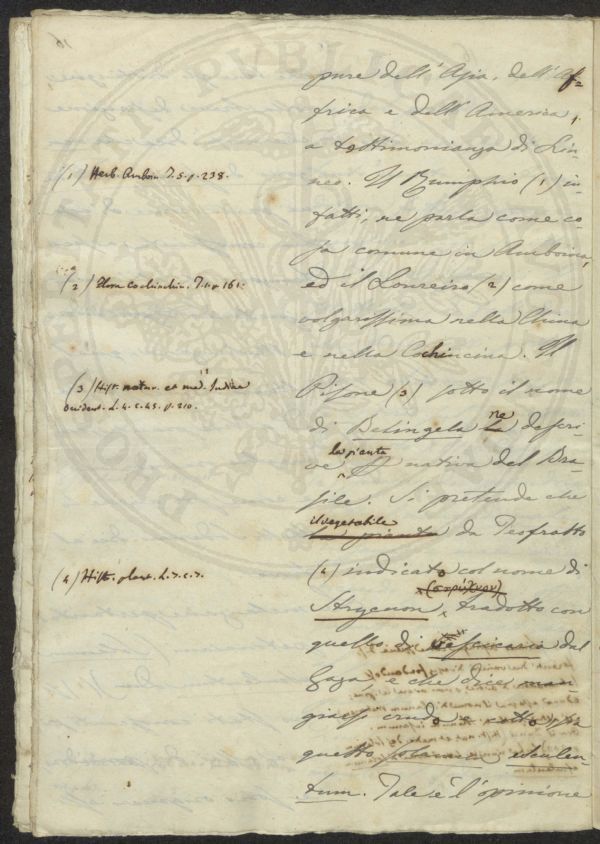 pure dell'Asia, dell'Af=
frica e dell'America,
a testimonianza di Lin-
neo. Il Rumphio (1) in-
(1) Herb. Amboin T. 5. p. 238.
fatti, ne parla come co-
sa comune in Amboina,
(2) Flora cochinchin. T. 1. p. 161.
ed il Loureiro (2) come
volgarissima nella China
e nella Cochincina. Il
(3) Hist. natur. et med. Indiae
occident. L. 4. c. 45. p. 210.
Pisone (3) sotto il nome
di Belingela ne descri-
la pianta
ve nativa del Bra-
sile. Si pretende che
il vegetabile
la pianta da Teofrasto
(4) Hist. plant. L. 7. c. 7.
(4) indicato col nome di
Strycnon, tradotto con
quello di Vesicaria dal
Gaza e che dice man-
giarsi crudo e cotto, sia
questo solanum esculen-
tum. Tale è l'opinione